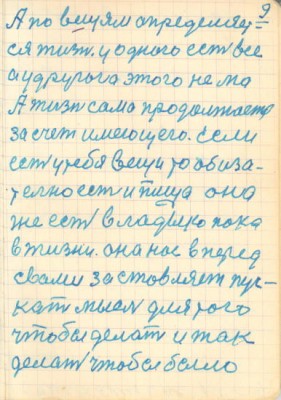 9
А по вещям определяет-
ся жизн. у одного ест все
а у другога этого не ма
А жизн сама продолжаетс
за счет имеющего. Если
ест у тебя вещи то обиза-
телно ест и пища она
же ест владыко пока
в жизни. она нас вперед
свами заставляет пус-
кат мысл для того
чтобы делат и так
делат чтобы было